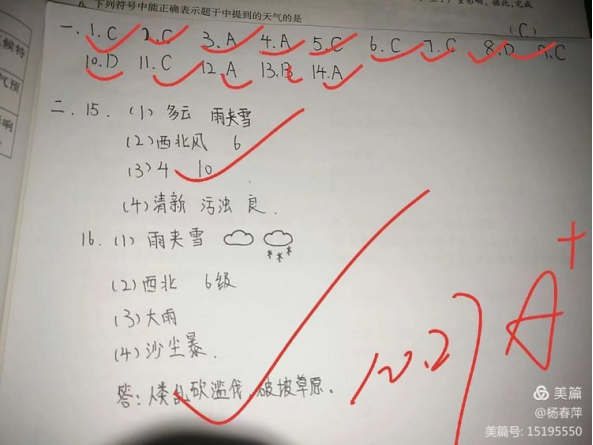 6. 下列符号中能正确表示题干中提到的天气的是
(C)
一、1.C 2.C 3.A 4.A 5.C 6.C 7.C 8.D 9.C
10.D 11.C 12.A 13.B 14.A
二、15. (1) 多云 雨夹雪
(2) 西北风 6
(3) 4 10
(4) 清新 污浊 良.
16. (1) 雨夹雪
(2) 西北 6级
(3) 大雨
(4) 沙尘暴.
答: 人类乱砍滥伐, 破坡草原.
10.27 A+
美篇
@杨春萍
美篇号: 15195550